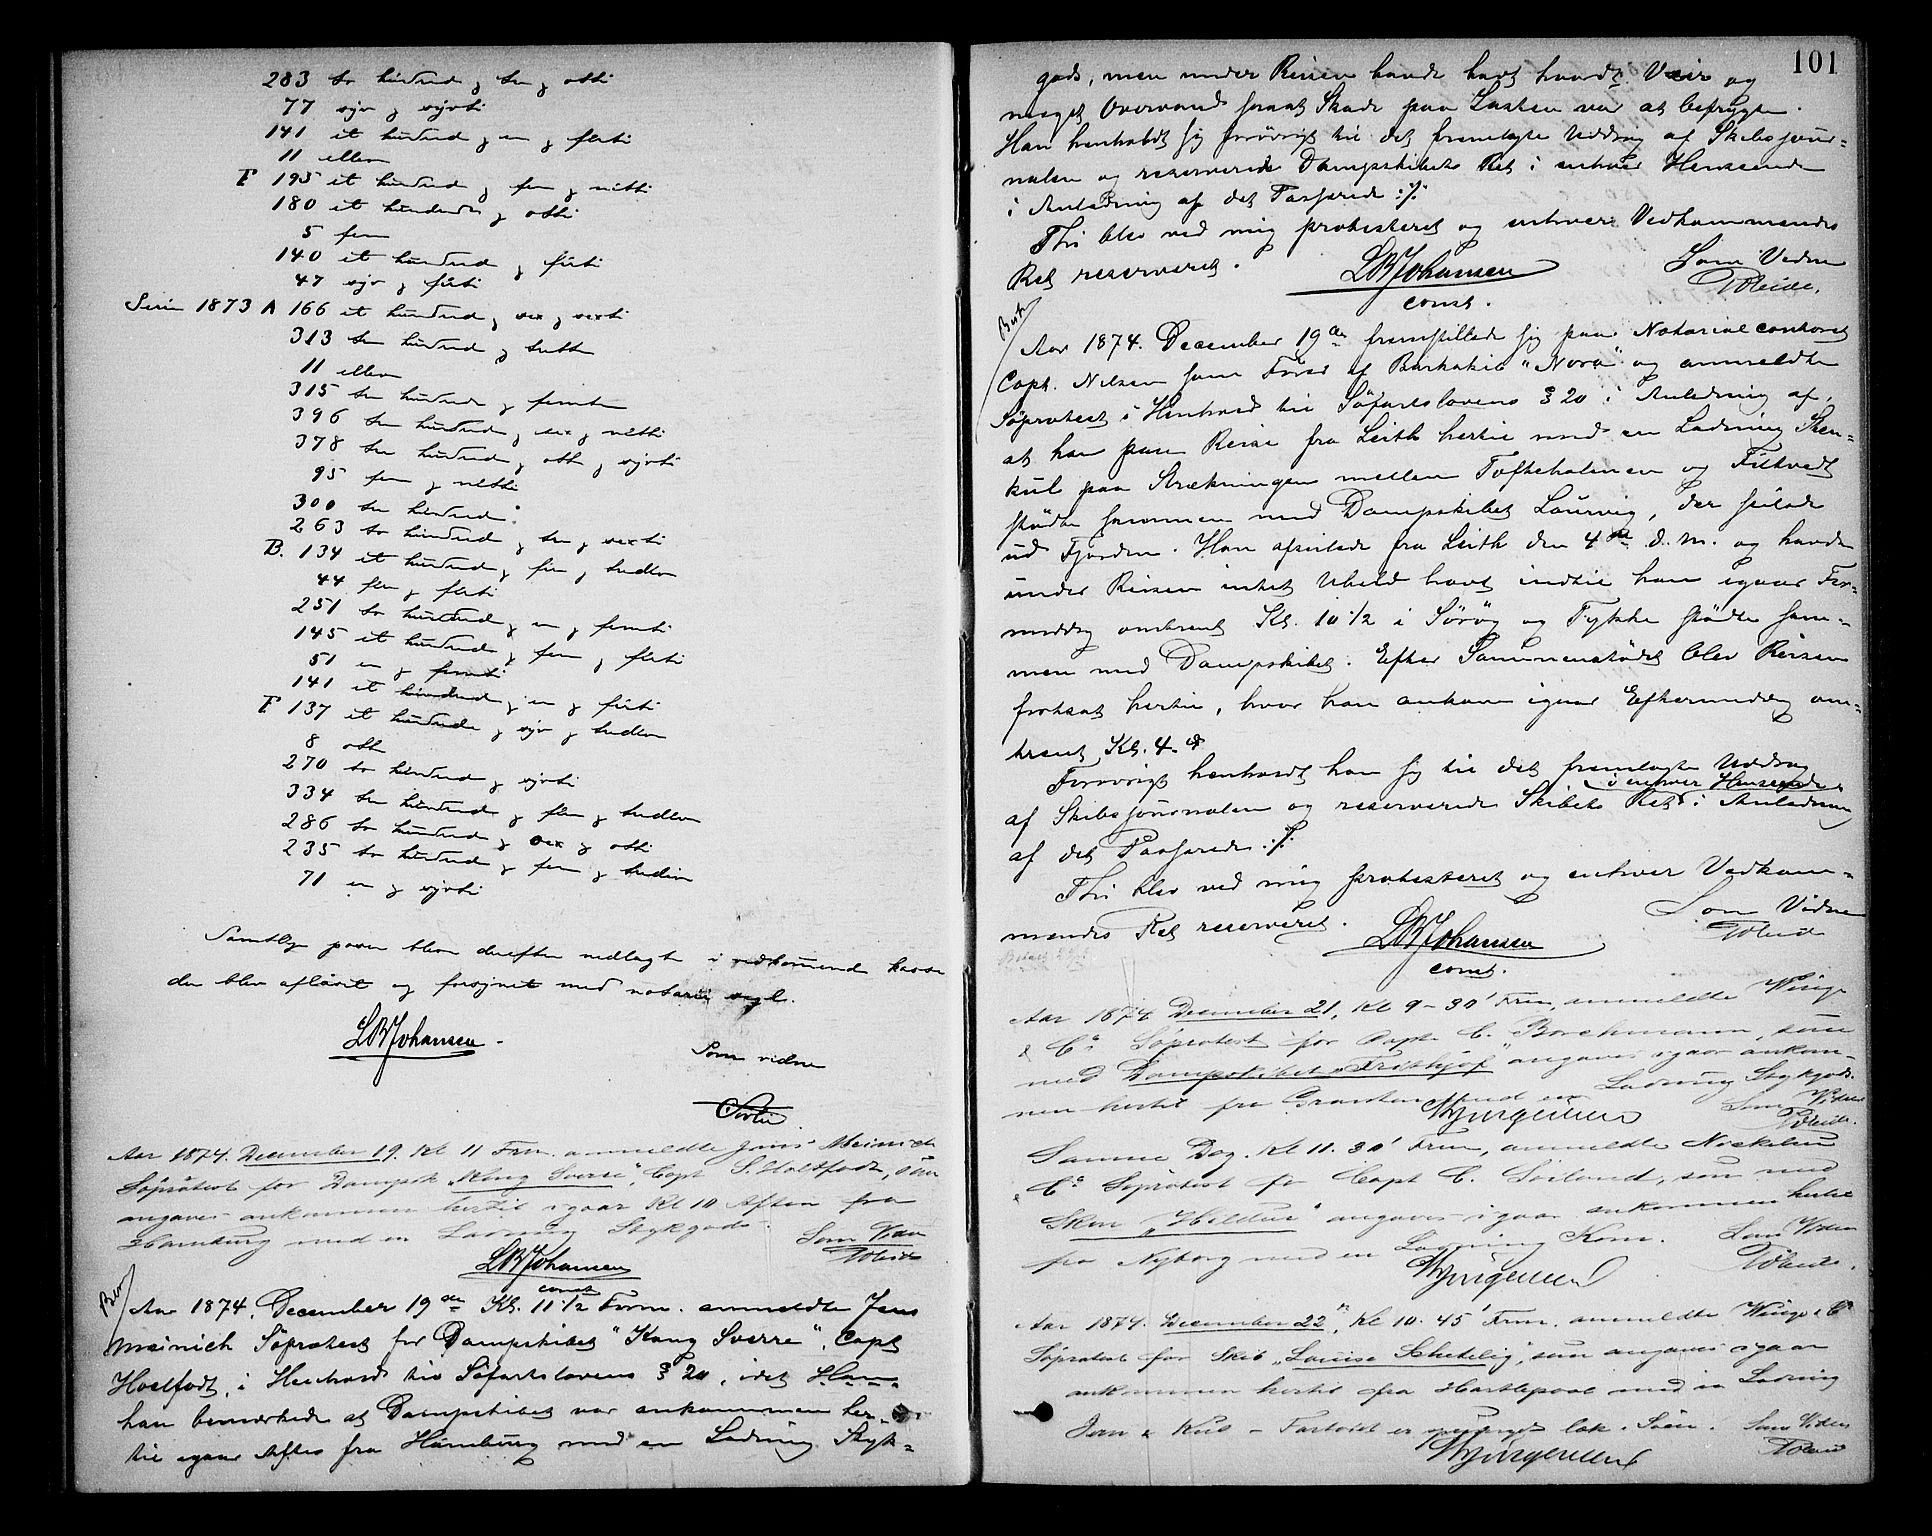 283 to hundred og tre og otti
77 syv og syvti
141 et hundred og en og firti
11 ellev
F 195 et hundred og fem og nitti
180 et hundrede og otti
5 fem
140 et hundred og firti
47 syv og firti
Serie 1873 A 166 et hundred og sex og sexti
313 tre hundred og tretten
11 ellev
315 tre hundred og femten
396 tre hundred og sex og nitti
378 tre hundred og otte og syvti
95 fem og nitti
300 tre hundred
263 to hundred og tre og sexti
B. 134 et hundred og fire og tredive
44 fire og firti
251 to hundred og en og femti
145 et hundred og fem og firti
51 en og femti
141 et hundred og en og firti
F. 137 et hundrede og syv og tredive
8 otte
270 to hundred og syvti
334 tre hundred og fire og tredive
286 to hundred og sex og otti
235 to hundred og fem og tredive
71 en og syvti
Samtlige prøver blev derefter nedlagte i vedkommende kasse
der blev aflaaset og forsynet med notarii segl.
LBJohansen
Som vidne
Aar 1874. December 19. Kl 11 Frm. anmeldte Jens Meinich
Søprotest for Dampsk. "Kong Sverre", Capt S. Holtfodt, som
angaves ankommen hertil igaar Kl 10 Aften fra
Hamburg med en Ladning Stykgods. Som Vidne
LBJohansen
const
Aar 1874. December 19de Kl. 11 1/2 Form. anmeldte Jens
Meinich Søprotest for Dampskibet "Kong Sverre", Capt
Holtfodt, i Henhold til Søfartslovens § 20, idet
han bemærkede at Dampskibet var ankommen her-
til igaar Aftes fra Hamburg med en Ladning Styk-
101
gods, men under Reisen havde havt haardt Veir og
meget Overvand saaat Skade paa Lasten var at befrygte.
Han henholdt sig forøvrigt til det fremlagte Uddrag af Skibsjour-
nalen og reserverede Dampskibets Ret i enhver Henseende
i Anledning af det Passerede ./.
Thi blev ved mig protesteret og enhver Vedkommendes
Ret reserveret. LBJohansen Som Vidne
const.
Aar 1874. December 19de fremstillede sig paa Notarialcontoret
Capt. Nilsen som Fører af Barkskib "Nora" og anmeldte
Søprotest i Henhold til Søfartslovens § 20 i Anledning af,
at han paa Reise fra Leith hertil med en Ladning Sten-
kul paa Strækningen mellem Tofteholmen og Filtvedt
stødte sammen med Dampskibet Laurvig, der seilede
ud Fjorden. Han afseilede fra Leith den 4de d.M. og havde
under Reisen intet Uheld havt indtil han igaar For-
middag omtrent Kl. 10 1/2 i Sørøg og Tykke stødte sam-
men med Dampskibet. Efter Sammenstødet blev Reisen
fortsat hertil, hvor han ankom igaar Eftermiddag om-
trent Kl. 4.
Forøvrigt henholdt han sig til det fremlagte Uddrag
i enhver Henseende
af Skibsjournalen og reserverede Skibets Ret i Anledning
af det Passerede ./.
Thi blev ved mig protesteret og enhver Vedkom-
mendes Ret reserveret. LBJohansen Som Vidne
const.
Aar 1874 December 21, Kl 9-30' Frm, anmeldte Winge
& Co Søprotest for Capt. C. Borchmann, som
med Dampskibet "Frithjof" angaves igaar ankom-
men hertil fra Granton med en Ladning Stykgods.
Som Vidne
Samme Dag. Kl 11.30' Frm, anmeldte
& Co Søprotest for Capt C. Soilund, som med
Skon. "Heldine" angaves igaar ankommen hertil
fra Nyborg med en Ladning Korn. Som Vidne
Aar 1874. December 22, Kl 10.45' Frm. anmeldte Winge & Co
Søprotest for Skib "Louise Schetelig", som angaves igaar
ankommen hertil fra Hartlepool med en Ladning
Jern & Kul – Fartøiet er sprunget læk i Søen. Som Vidne